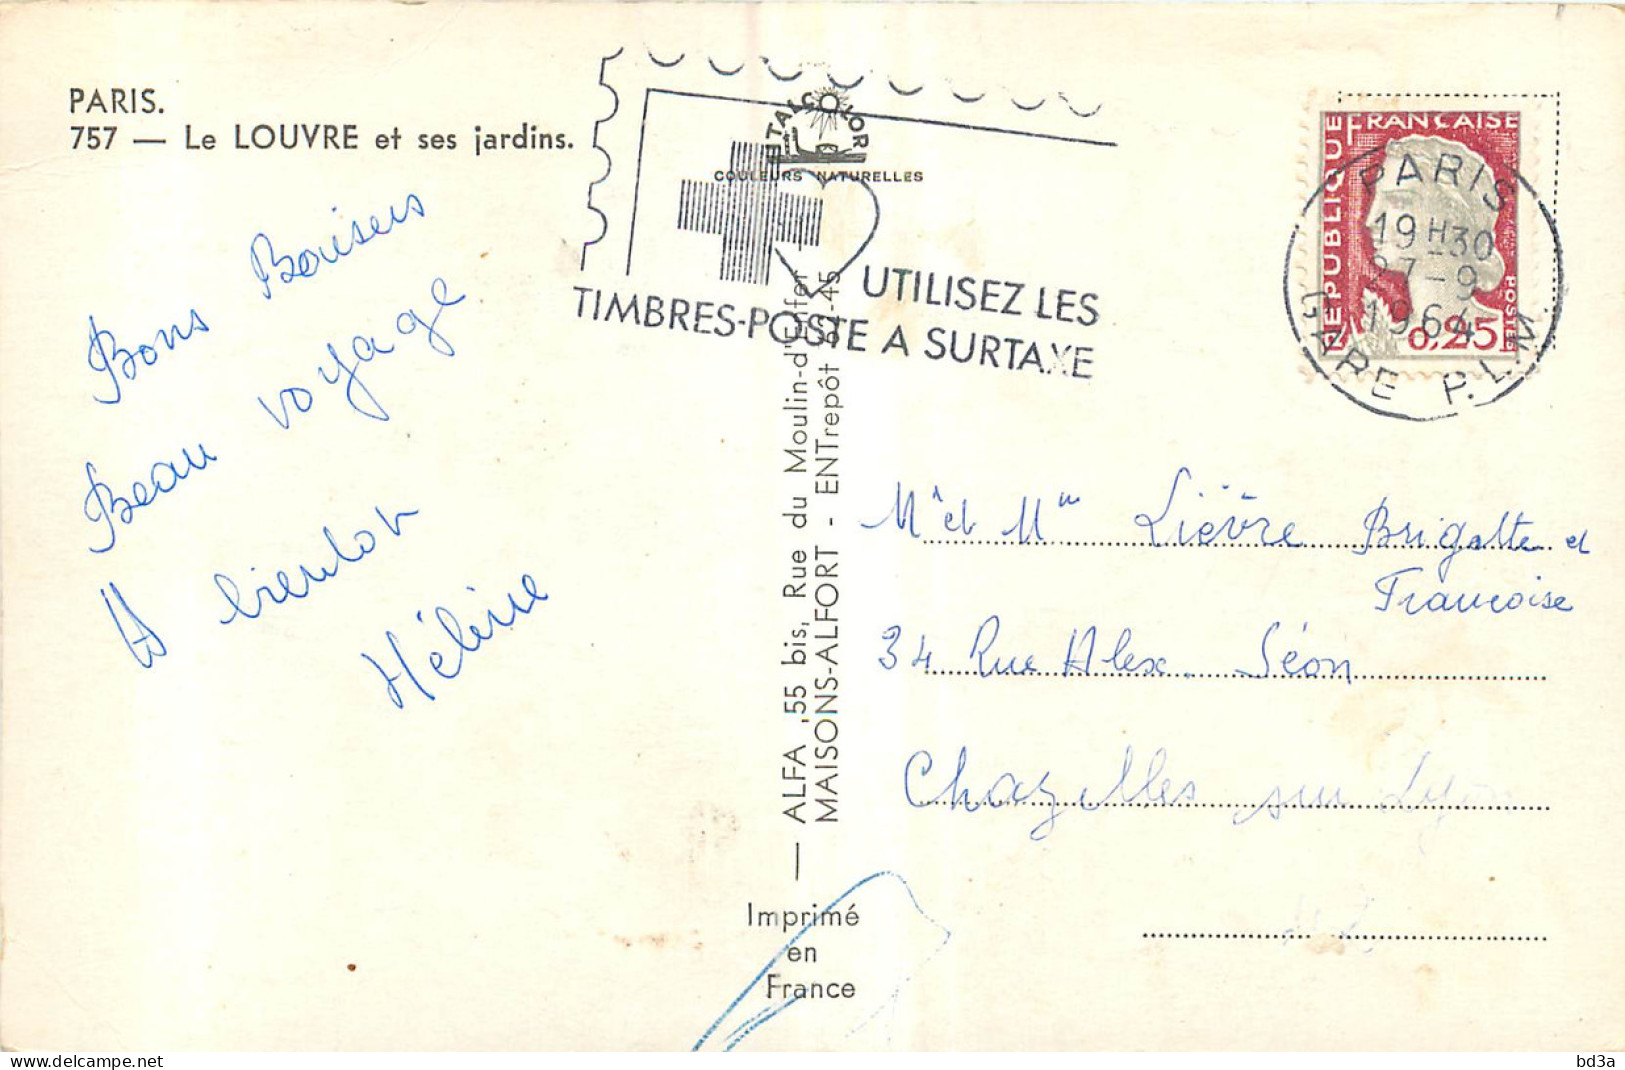 PARIS.
757 — Le LOUVRE et ses jardins.
Bons Baisers
Beau voyage
A bientot
Hélène
ETALCOLOR
COULEURS NATURELLES
UTILISEZ LES
TIMBRES-POSTE A SURTAXE
— ALFA, 55 bis, Rue du Moulin-d'Enfer
MAISONS-ALFORT - ENTrepôt 02-45
Imprimé
en
France
REPUBLIQUE FRANCAISE
POSTES
0,25
PARIS
19H30
27-9
1964
GARE P.L.M.
Mr et Mme Lièvre Brigitte et
Francoise
34 Rue Alex. Séon
Chazelles sur Lyon
bd3a
www.delcampe.net